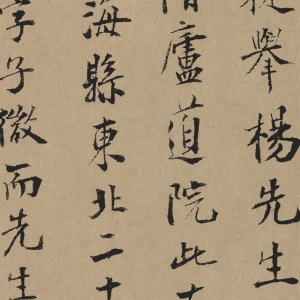 舉楊先生
廬道院此
海縣東北二十
學子徵而先生